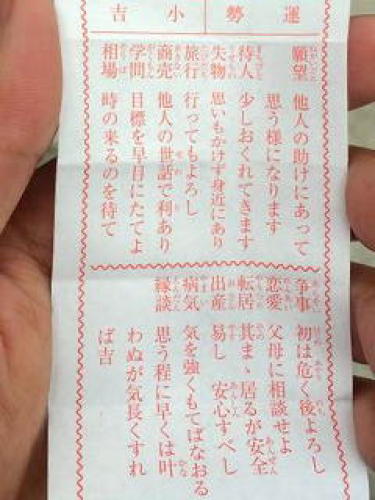 運勢 小吉
願望 他人の助けにあって
思う様になります
待人 少しおくれてきます
失物 思いもかけず身近にあり
旅行 行ってもよろし
商売 他人の世話で利あり
学問 目標を早目にたてよ
相場 時の来るのを待て
争事 初は危く後よろし
恋愛 父母に相談せよ
転居 其まゝ居るが安全
出産 易し 安心すべし
病気 気を強くもてばなおる
縁談 思う程に早くは叶
わぬが気長くすれ
ば吉